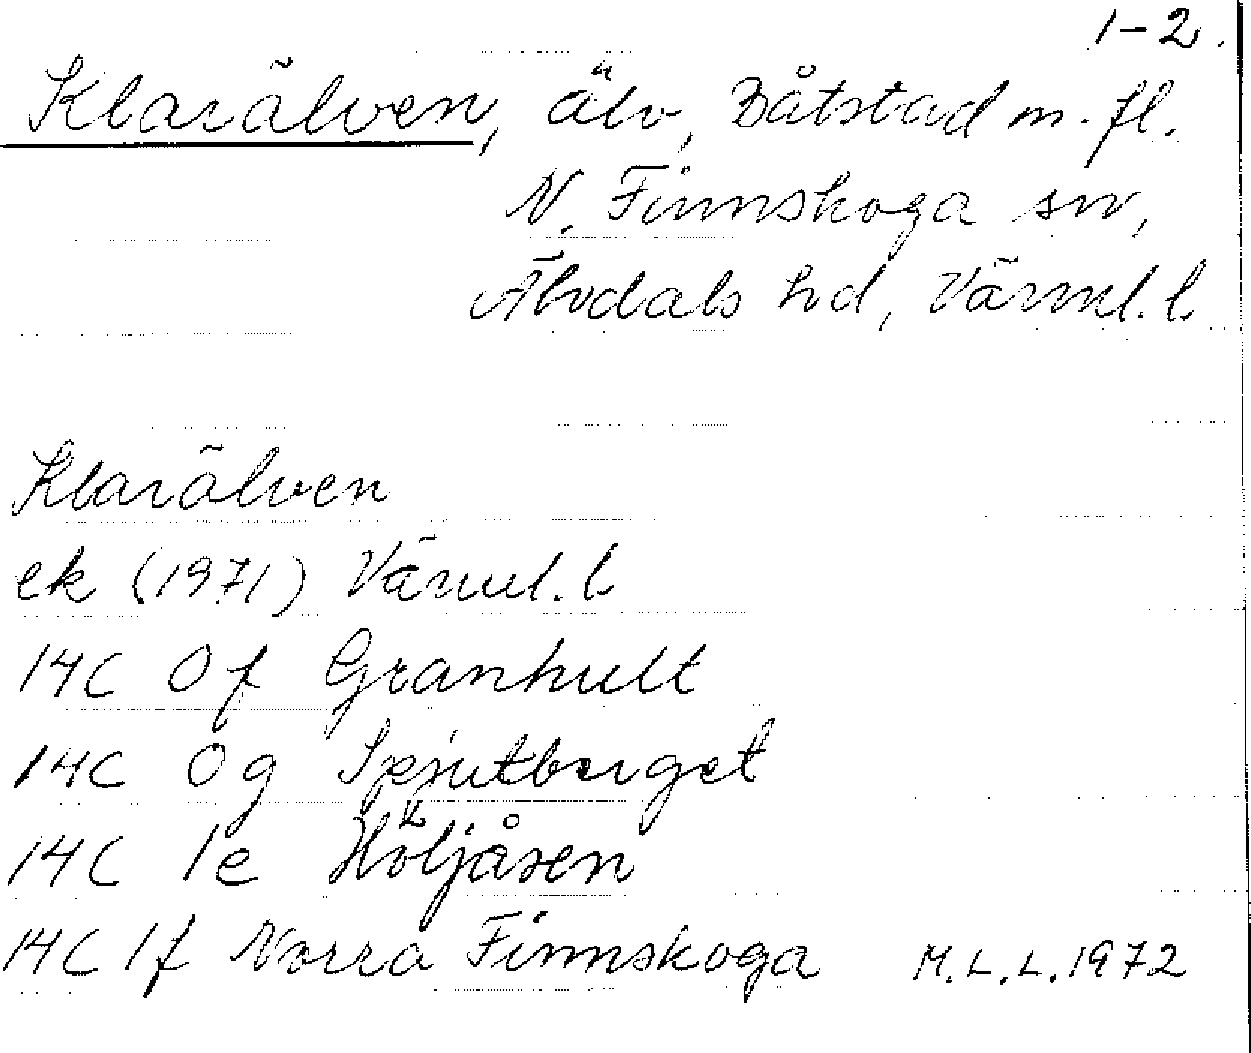 1-2.
Klarälven, älv, Båtstad m. fl.
N. Finnskoga sn,
Älvdals hd, Värml. l
Klarälven
ek (1971) Värml. l
14C 0f Granhult
14C 0g Spjutberget
14C 1e Höljåsen
14C 1f Norra Finnskoga M.L.L. 1972